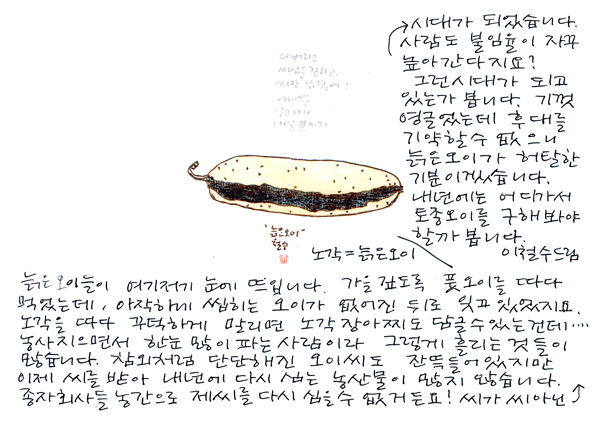 다 버리고
"늙은오이"
철수
노각=늙은오이
늙은오이들이 여기저기 눈에 뜨입니다. 가을 깊도록 풋오이를 따다
먹었는데, 아작하게 씹히는 오이가 없어진 뒤로 잊고있었지요.
노각을 따다 꾸덕하게 말리면 노각장아찌도 담을수있는건데….
농사지으면서 한눈 많이 파는 사람이라 그렇게 흘리는 것들이
많습니다. 참외처럼 단단해진 오이씨도 잔뜩들어있지만
이제 씨를 받아 내년에 다시 심는 농산물이 많지 않습니다.
종자회사들 농간으로 제씨를 다시 심을수 없거든요! 씨가 씨아닌
시대가 되었습니다.
사람도 불임율이 자꾸
높아간다지요?
그런시대가 되고
있는가 봅니다. 기껏
영글었는데 후대를
기약할수 없으니
늙은오이가 허탈한
기분이겠습니다.
내년에는 어디가서
토종오이를 구해봐야
할까 봅니다.
이철수드림